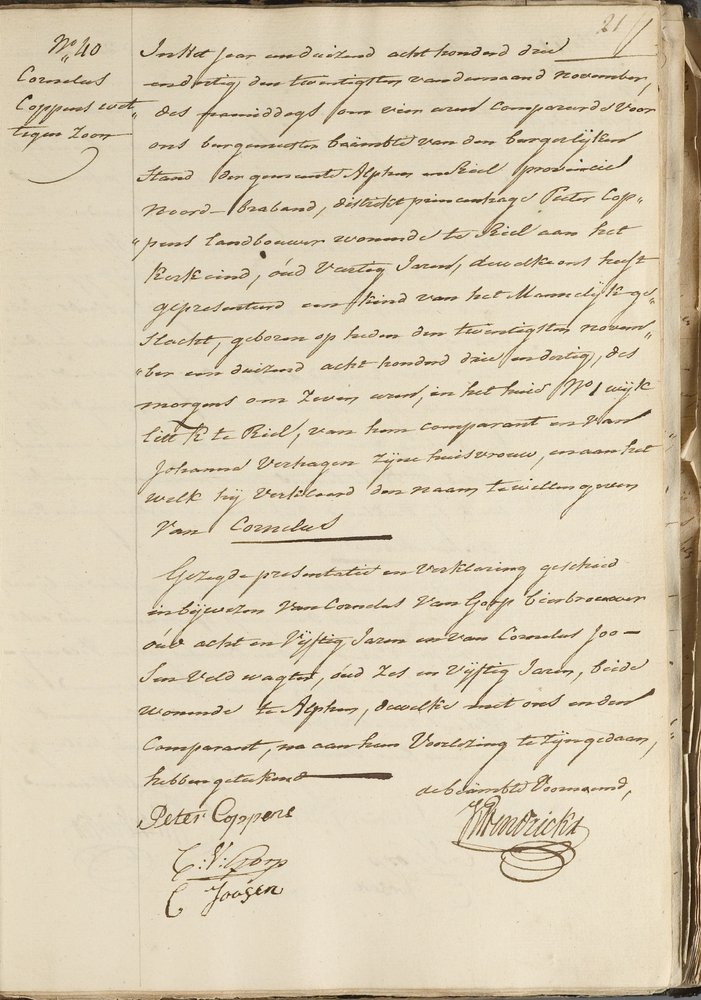 21
N° 40
Cornelus
Coppens wet„
tigen Zoon
In Het Jaar een duizend acht honderd drie
en dertig den twentigsten van de maand November,
des namiddags om vier uren Compareerde Voor
ons burgemeester beämbte van den burgerlijken
Stand der gemeente Alphen en Riel provincie
Noord-braband, distrikt princenhage Peter Cop„
„pens landbouwer wonende te Riel aan het
Kerkeind, oúd Vertig Jaren, dewelke ons heeft
gepresenteerd een Kind van het Mannelijk ge„
slacht, geboren op heden den twentigsten novem„
„ber een duizend acht honderd drie en dertig, des
morgens om Zeven uren, in het huis N° 1 wijk
litt K te Riel, van hem comparant en Van
Johanna Verhagen Zijne huisvrouw, en aan het
welk hij Verklaard den naam te willen geven
Van Cornelus
Gezegde presentatie en Verklaring geschied
in bijwezen Van Cornelus Van Gorp bierbrouwer
oúd acht en Vijftig Jaren en van Cornelus Joo-
sen Veldwagter, oúd Zes en Vijftig Jaren, beide
wonende te Alphen, dewelke met ons en den
Comparant, na aan hun Voorlezing te zijn gedaan,
hebben geteekend
de beämbte Voornoemd,
Peter Coppens
Hendrickx
C: V: Gorp
C Joosen